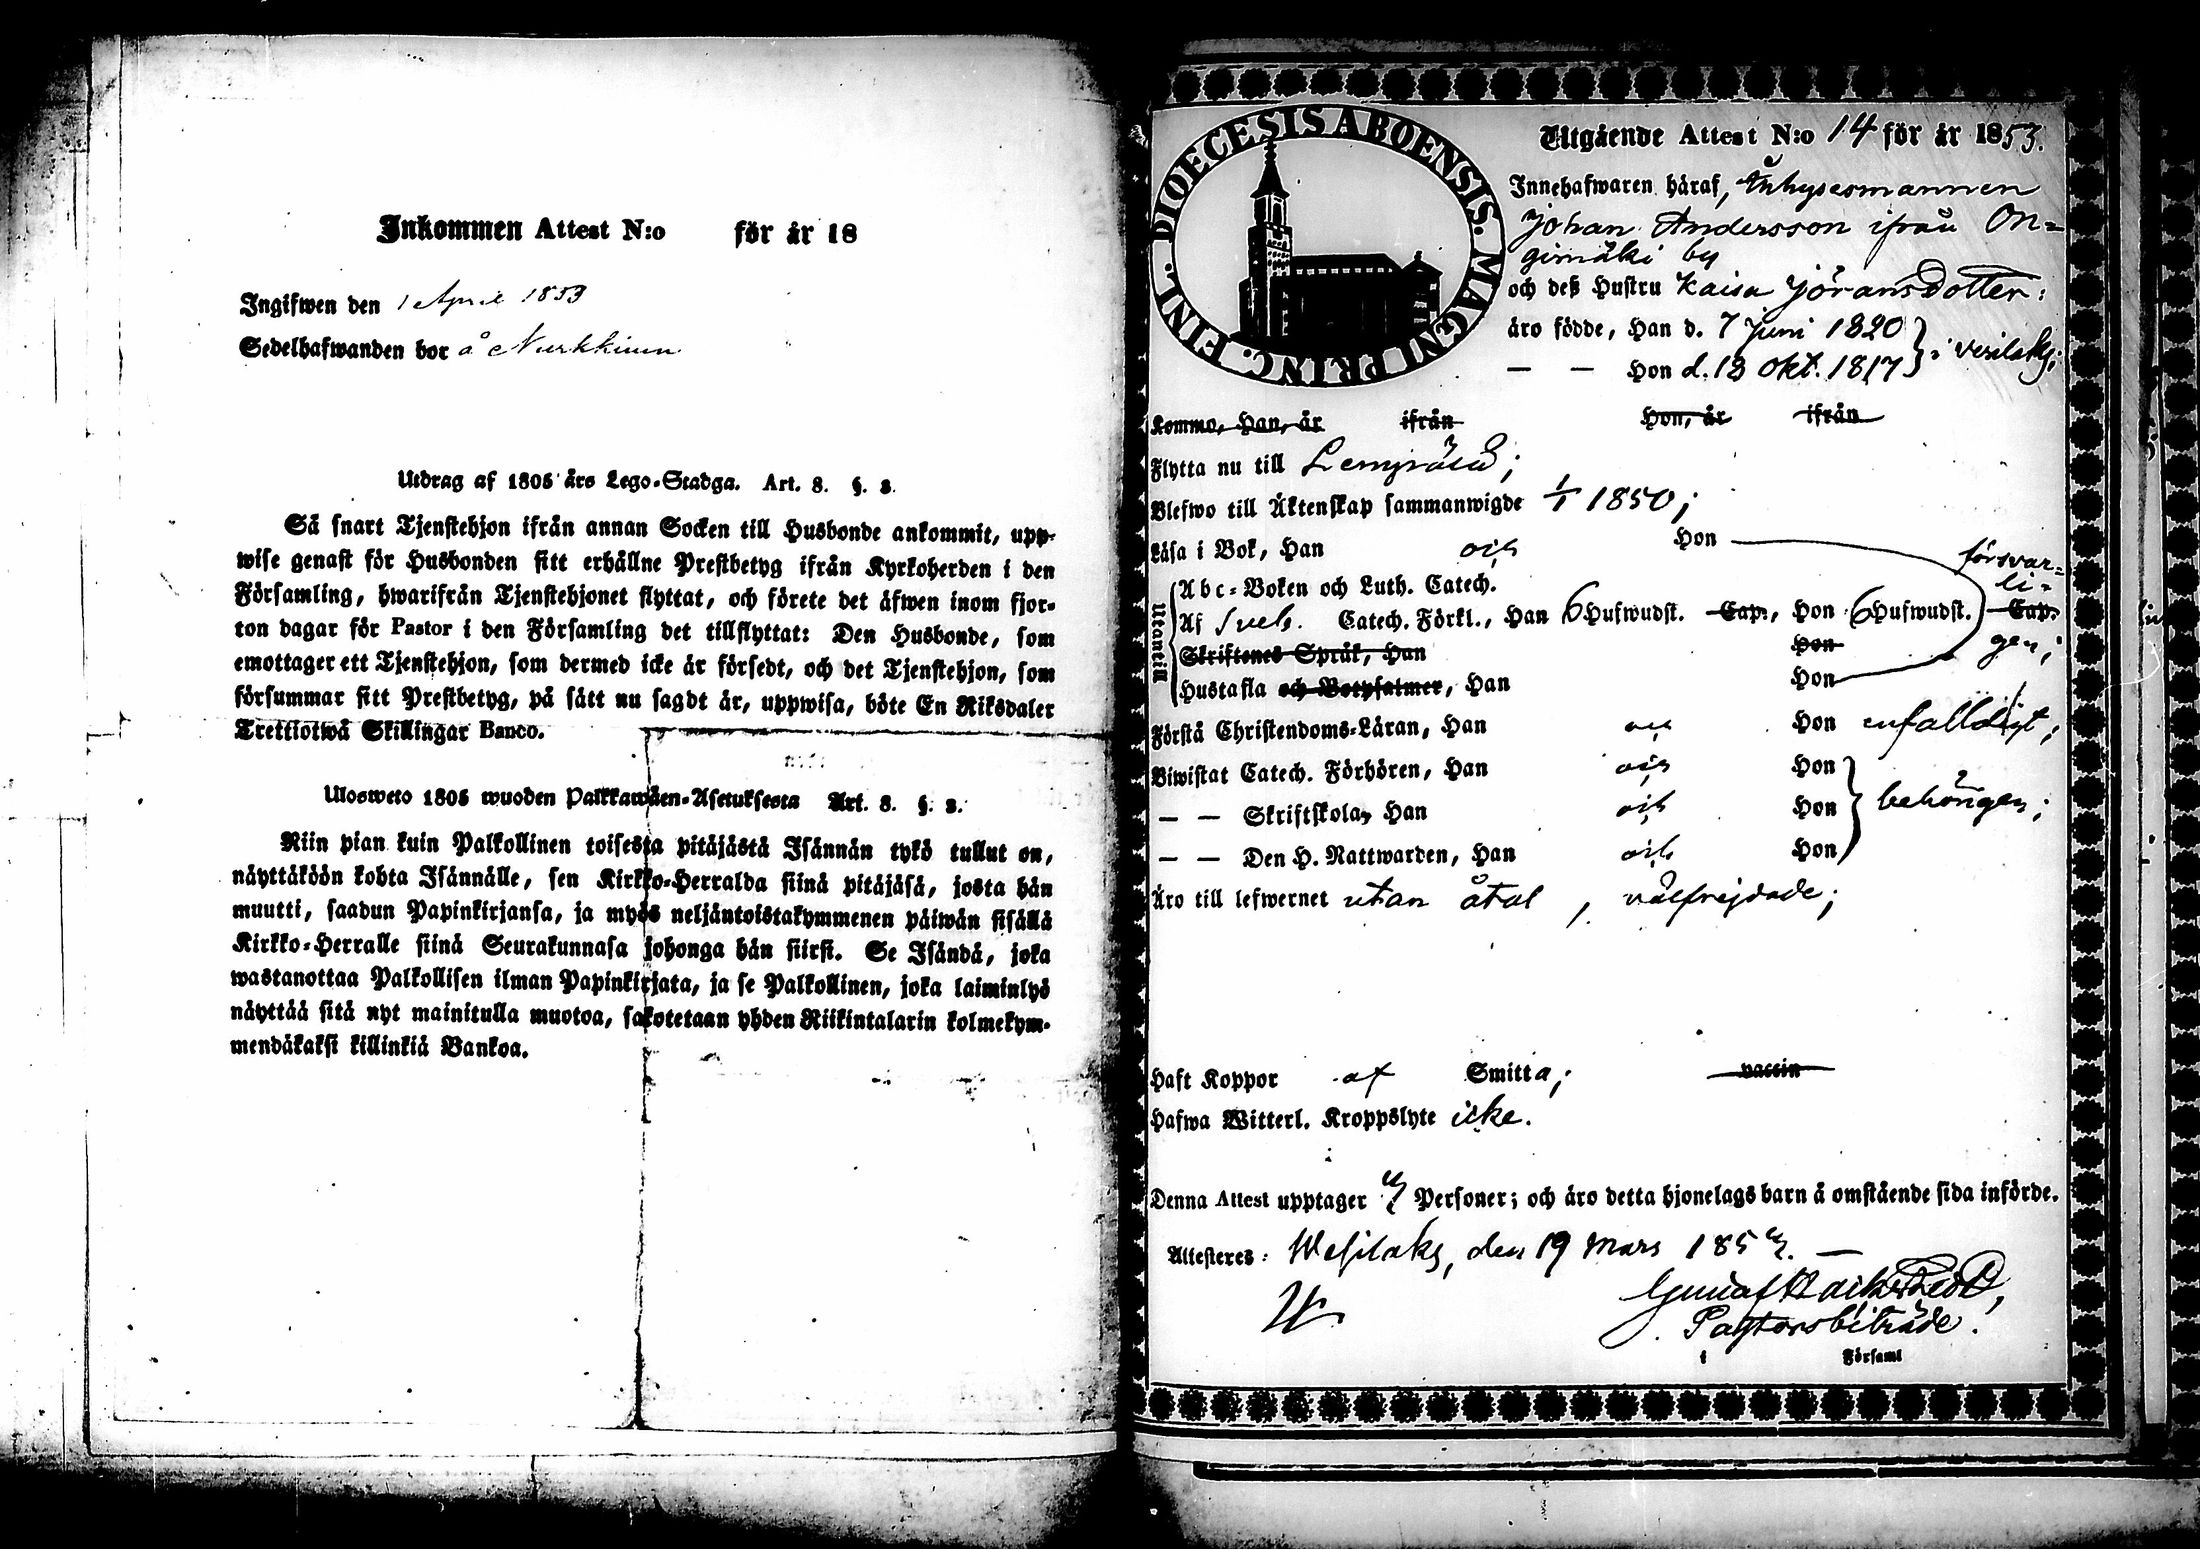 Inkommen Attest N:o för år 18
Ingifwen den 1 April 1853
Sedelhafwanden bor å Nurkkiun
Utdrag af 1805 års Lego-Stadga. Art. 8. §. 2.
Så snart Tjenstehjon ifrån annan Socken till Husbonde ankommit, upp-
wise genast för Husbonden sitt erhållne Prestbetyg ifrån Kyrkoherden i den
Församling, hwarifrån Tjenstehjonet flyttat, och förete det äfwen inom fjor-
ton dagar för Pastor i den Församling det tillflyttat: Den Husbonde, som
emottager ett Tjenstehjon, som dermed icke är försedt, och det Tjenstehjon, som
försummar sitt Prestbetyg, på sätt nu sagdt är, uppwisa, böte En Riksdaler
Trettiotwå Skillingar Banco.
Ulosweto 1805 wuoden Palkkawäen-Asetuksesta Art. 8. §. 2.
Niin pian kuin Palkollinen toisesta pitäjästä Isännän tykö tullut on,
näyttäköön kohta Isännälle, sen Kirkko-Herralda siinä pitäjäsä, josta hän
muutti, saadun Papinkirjansa, ja myös neljäntoistakymmenen päiwän sisällä
Kirkko-Herralle siinä Seurakunnasa johonga hän siirsi. Se Isändä, joka
wastanottaa Palkollisen ilman Papinkirjata, ja se Palkollinen, joka laiminlyö
näyttää sitä nyt mainitulla muotoa, sakotetaan yhden Riikintalarin kolmekym-
mendäkaksi killinkiä Bankoa.
DIOECESIS ABOENSIS. MAGNI PRINC. FINL.
Utgående Attest N:o 14 för år 1853.
Innehafwaren häraf, Inhysesmannen
Johan Andersson ifrån On-
gimäki by
och deß Hustru Kaisa Jöransdotter:
äro födde, Han d. 7 Juni 1820
— — Hon d. 18 Okt. 1817 } i Vesilaks;
Komme, Han, år ifrån Hon, år ifrån
Flytta nu till Lempälä;
Blefwo till Äktenskap sammanwigde 1/1 1850;
Läsa i Bok, Han och Hon försvar-
li-
Utantill
Abc-Boken och Luth. Catech.
Af Sveb. Catech. Förkl., Han 6 Hufwudst. Cap., Hon 6 Hufwudst. Cap.
Skriftenes Språk, Han Hon gen;
Hustafla och Botpsalmer, Han Hon
Förstå Christendoms-Läran, Han och Hon enfalldigt;
Biwistat Catech. Förhören, Han och Hon
— — Skriftskola, Han och Hon behörigen;
— — Den H. Nattwarden, Han och Hon
Äro till lefwernet utan åtal, välfrejdade;
Haft Koppor af Smitta; vaccin
Hafwa Witterl. Kroppslyte icke.
Denna Attest upptager Personer; och äro detta hjonelags barn å omstående sida införde.
Attesteras: Wesilaks, den 19 Mars 1853. —
Gustaf
Pastorsbiträde.
i Församl